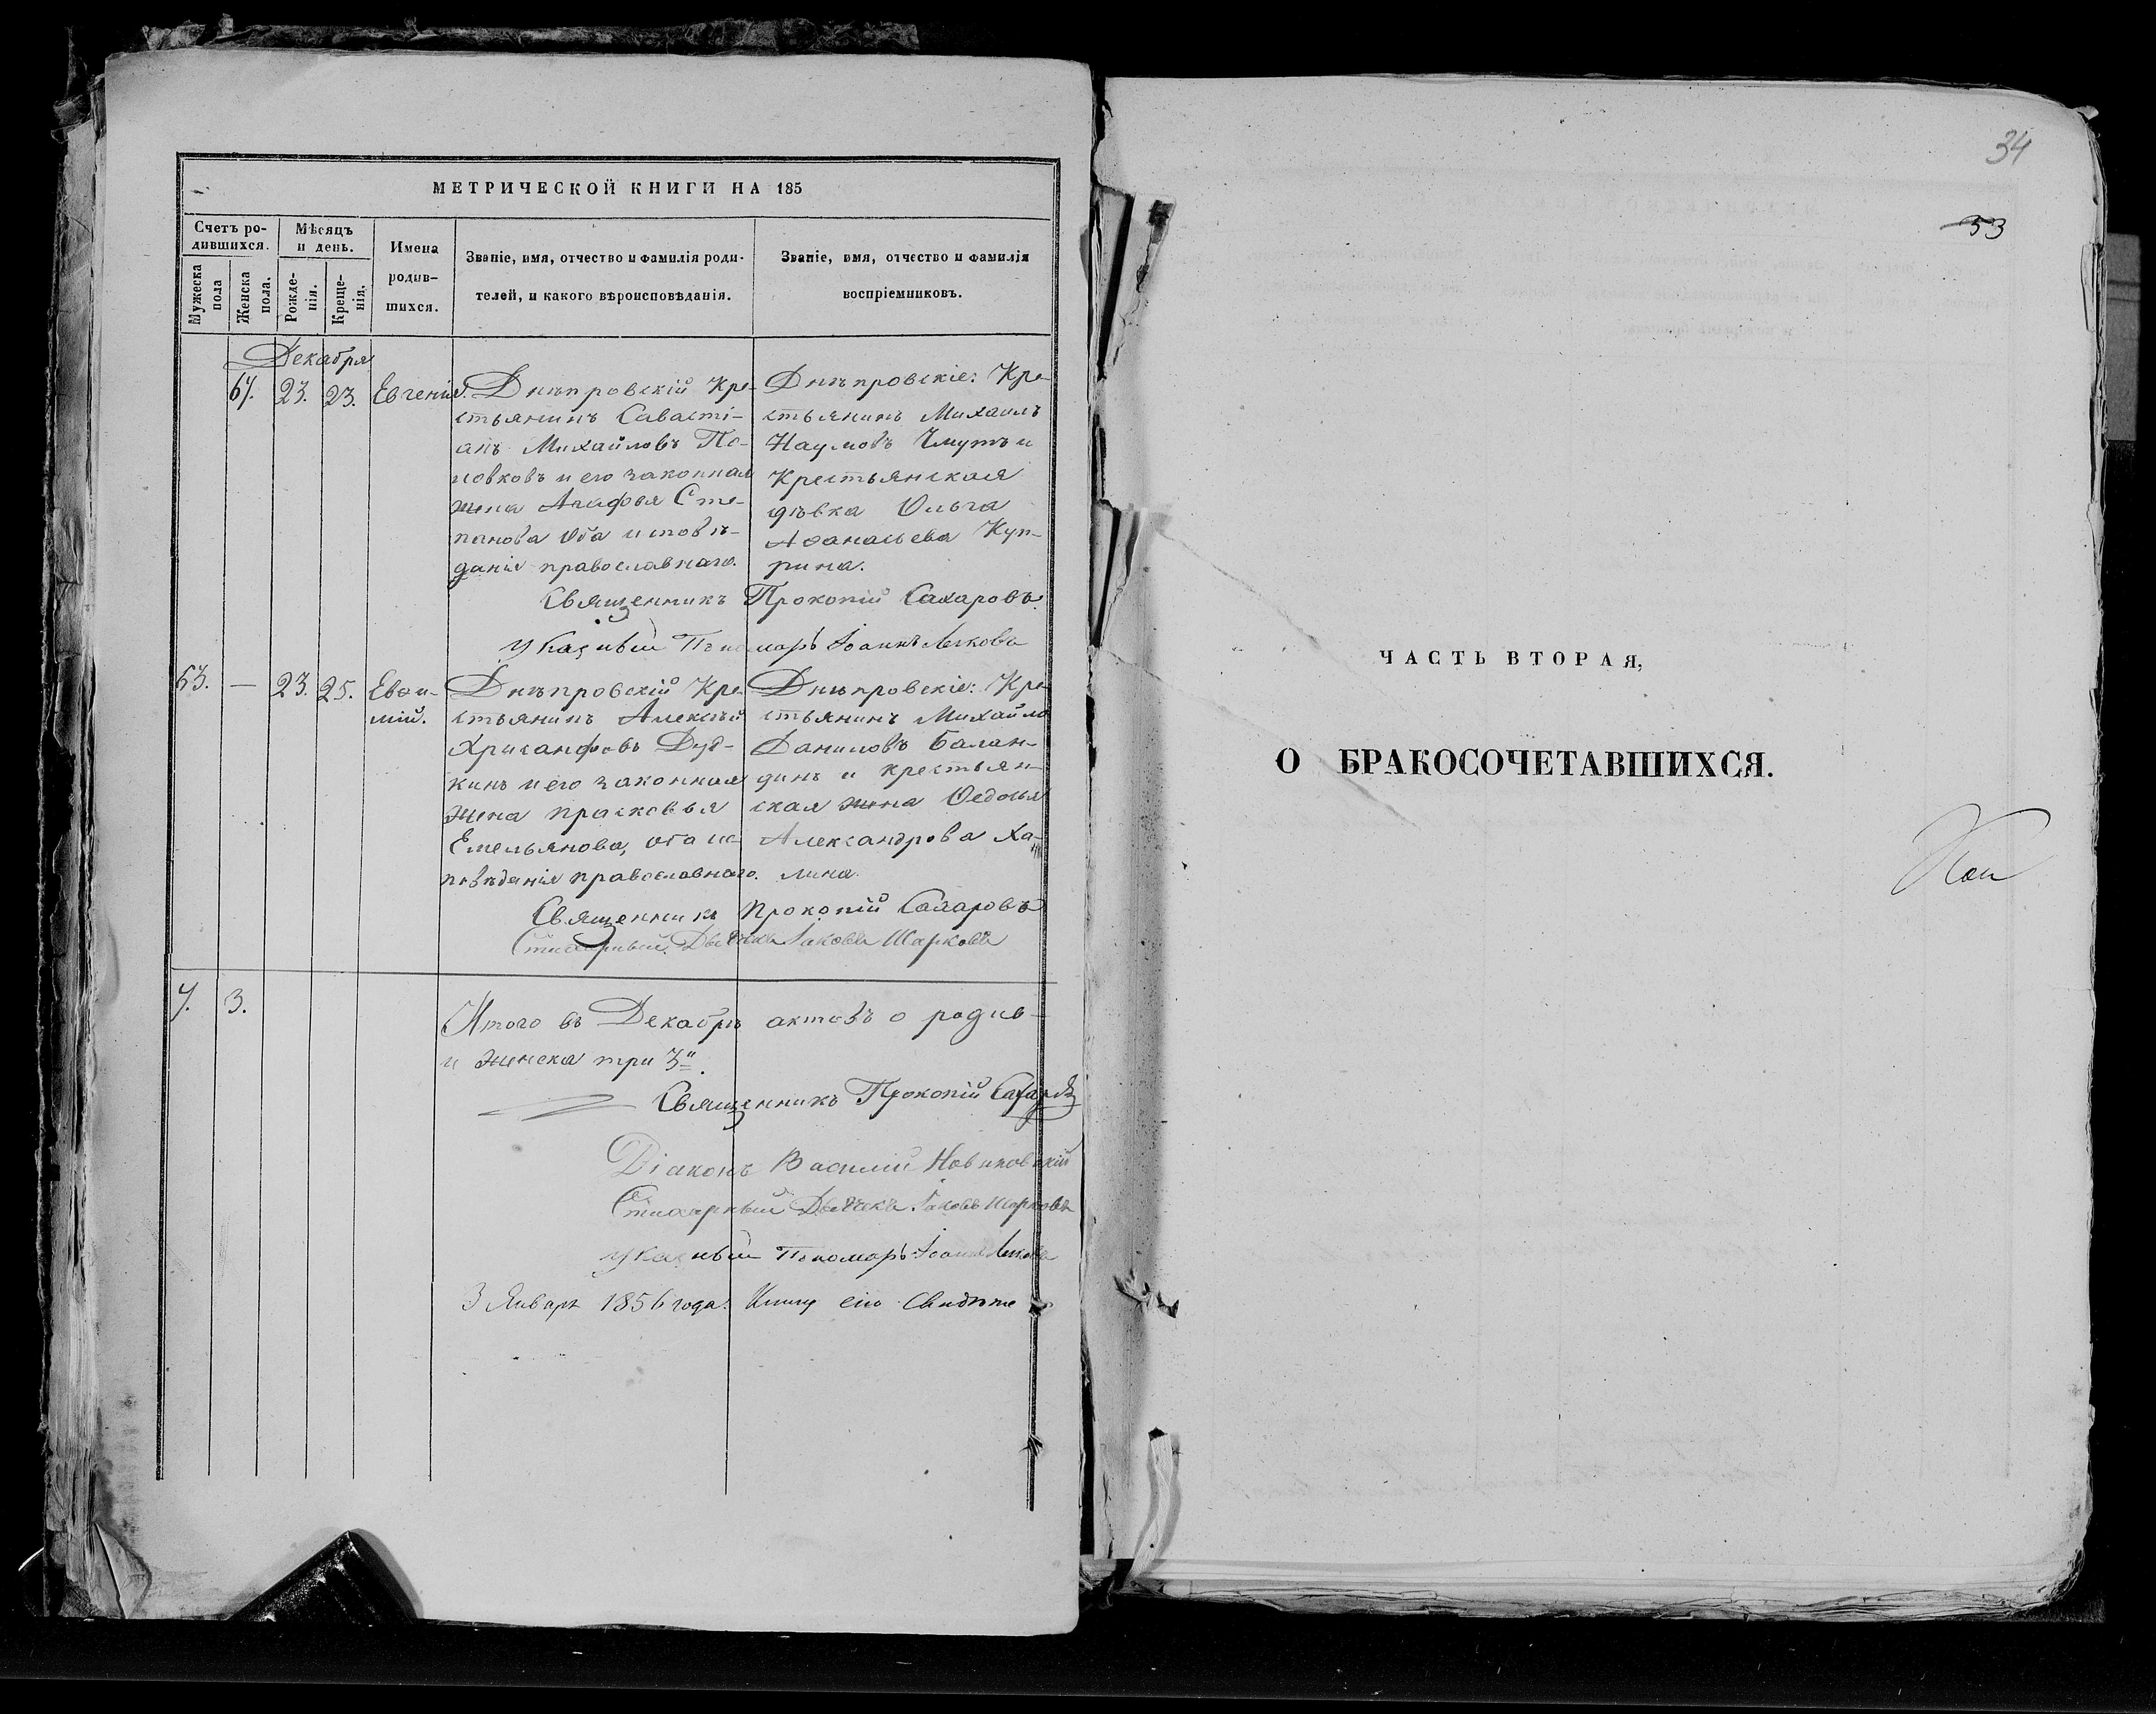 МЕТРИЧЕСКОЙ КНИГИ НА 185
Счетъ ро-
дившихся.
Мѣсяцъ
и день.
Имена
родив-
шихся.
Званіе, имя, отчество и фамилія роди-
телей, и какого вѣроисповѣданія.
Званіе, имя, отчество и фамилія
воспріемниковъ.
Мужеска
пола
Женска
пола.
Рожде-
нія.
Креще-
нія.
Декабря
67. 23. 23. Евгенія.
Днѣпровскій Кре-
стьянинъ Савасті-
анъ Михайловъ По-
повковъ и его законная
жена Агафья Сте-
панова оба исповѣ-
данія православнаго.
Днѣпровскіе: Кре-
стьянинъ Михаилъ
Наумовъ Чмутъ и
Крестьянская
дѣвка Ольга
Аѳанасьева Куп-
рина.
Священникъ Прокопій Сахаровъ.
Указный Пономарь Іоаннъ
63. — 23. 25. Евѳи-
мій.
Днѣпровскій Кре-
стьянинъ Алексѣй
Хрисанфовъ Дуд-
кинъ и его законная
жена Прасковья
Емельянова, оба ис-
повѣданія православнаго.
Днѣпровскіе: Кре-
стьянинъ Михайло
Даниловъ Балан-
динъ и крестьян-
ская жена Ѳедосья
Александрова Ха-
лина.
Священникъ Прокопій Сахаровъ
Стихарный Дьячекъ Іаковъ Шарковъ
7. 3.
Итого въ Декабрѣ актовъ о родив-
и женска три 3"
Священникъ Прокопій Сахаровъ
Діаконъ Василій Новиковскій
Стихарный Дьячекъ Іаковъ Шарковъ
Указный Пономарь Іоаннъ
3 Январь 1856 года. Книгу сію Свидѣте
34
53
ЧАСТЬ ВТОРАЯ,
О БРАКОСОЧЕТАВШИХСЯ.